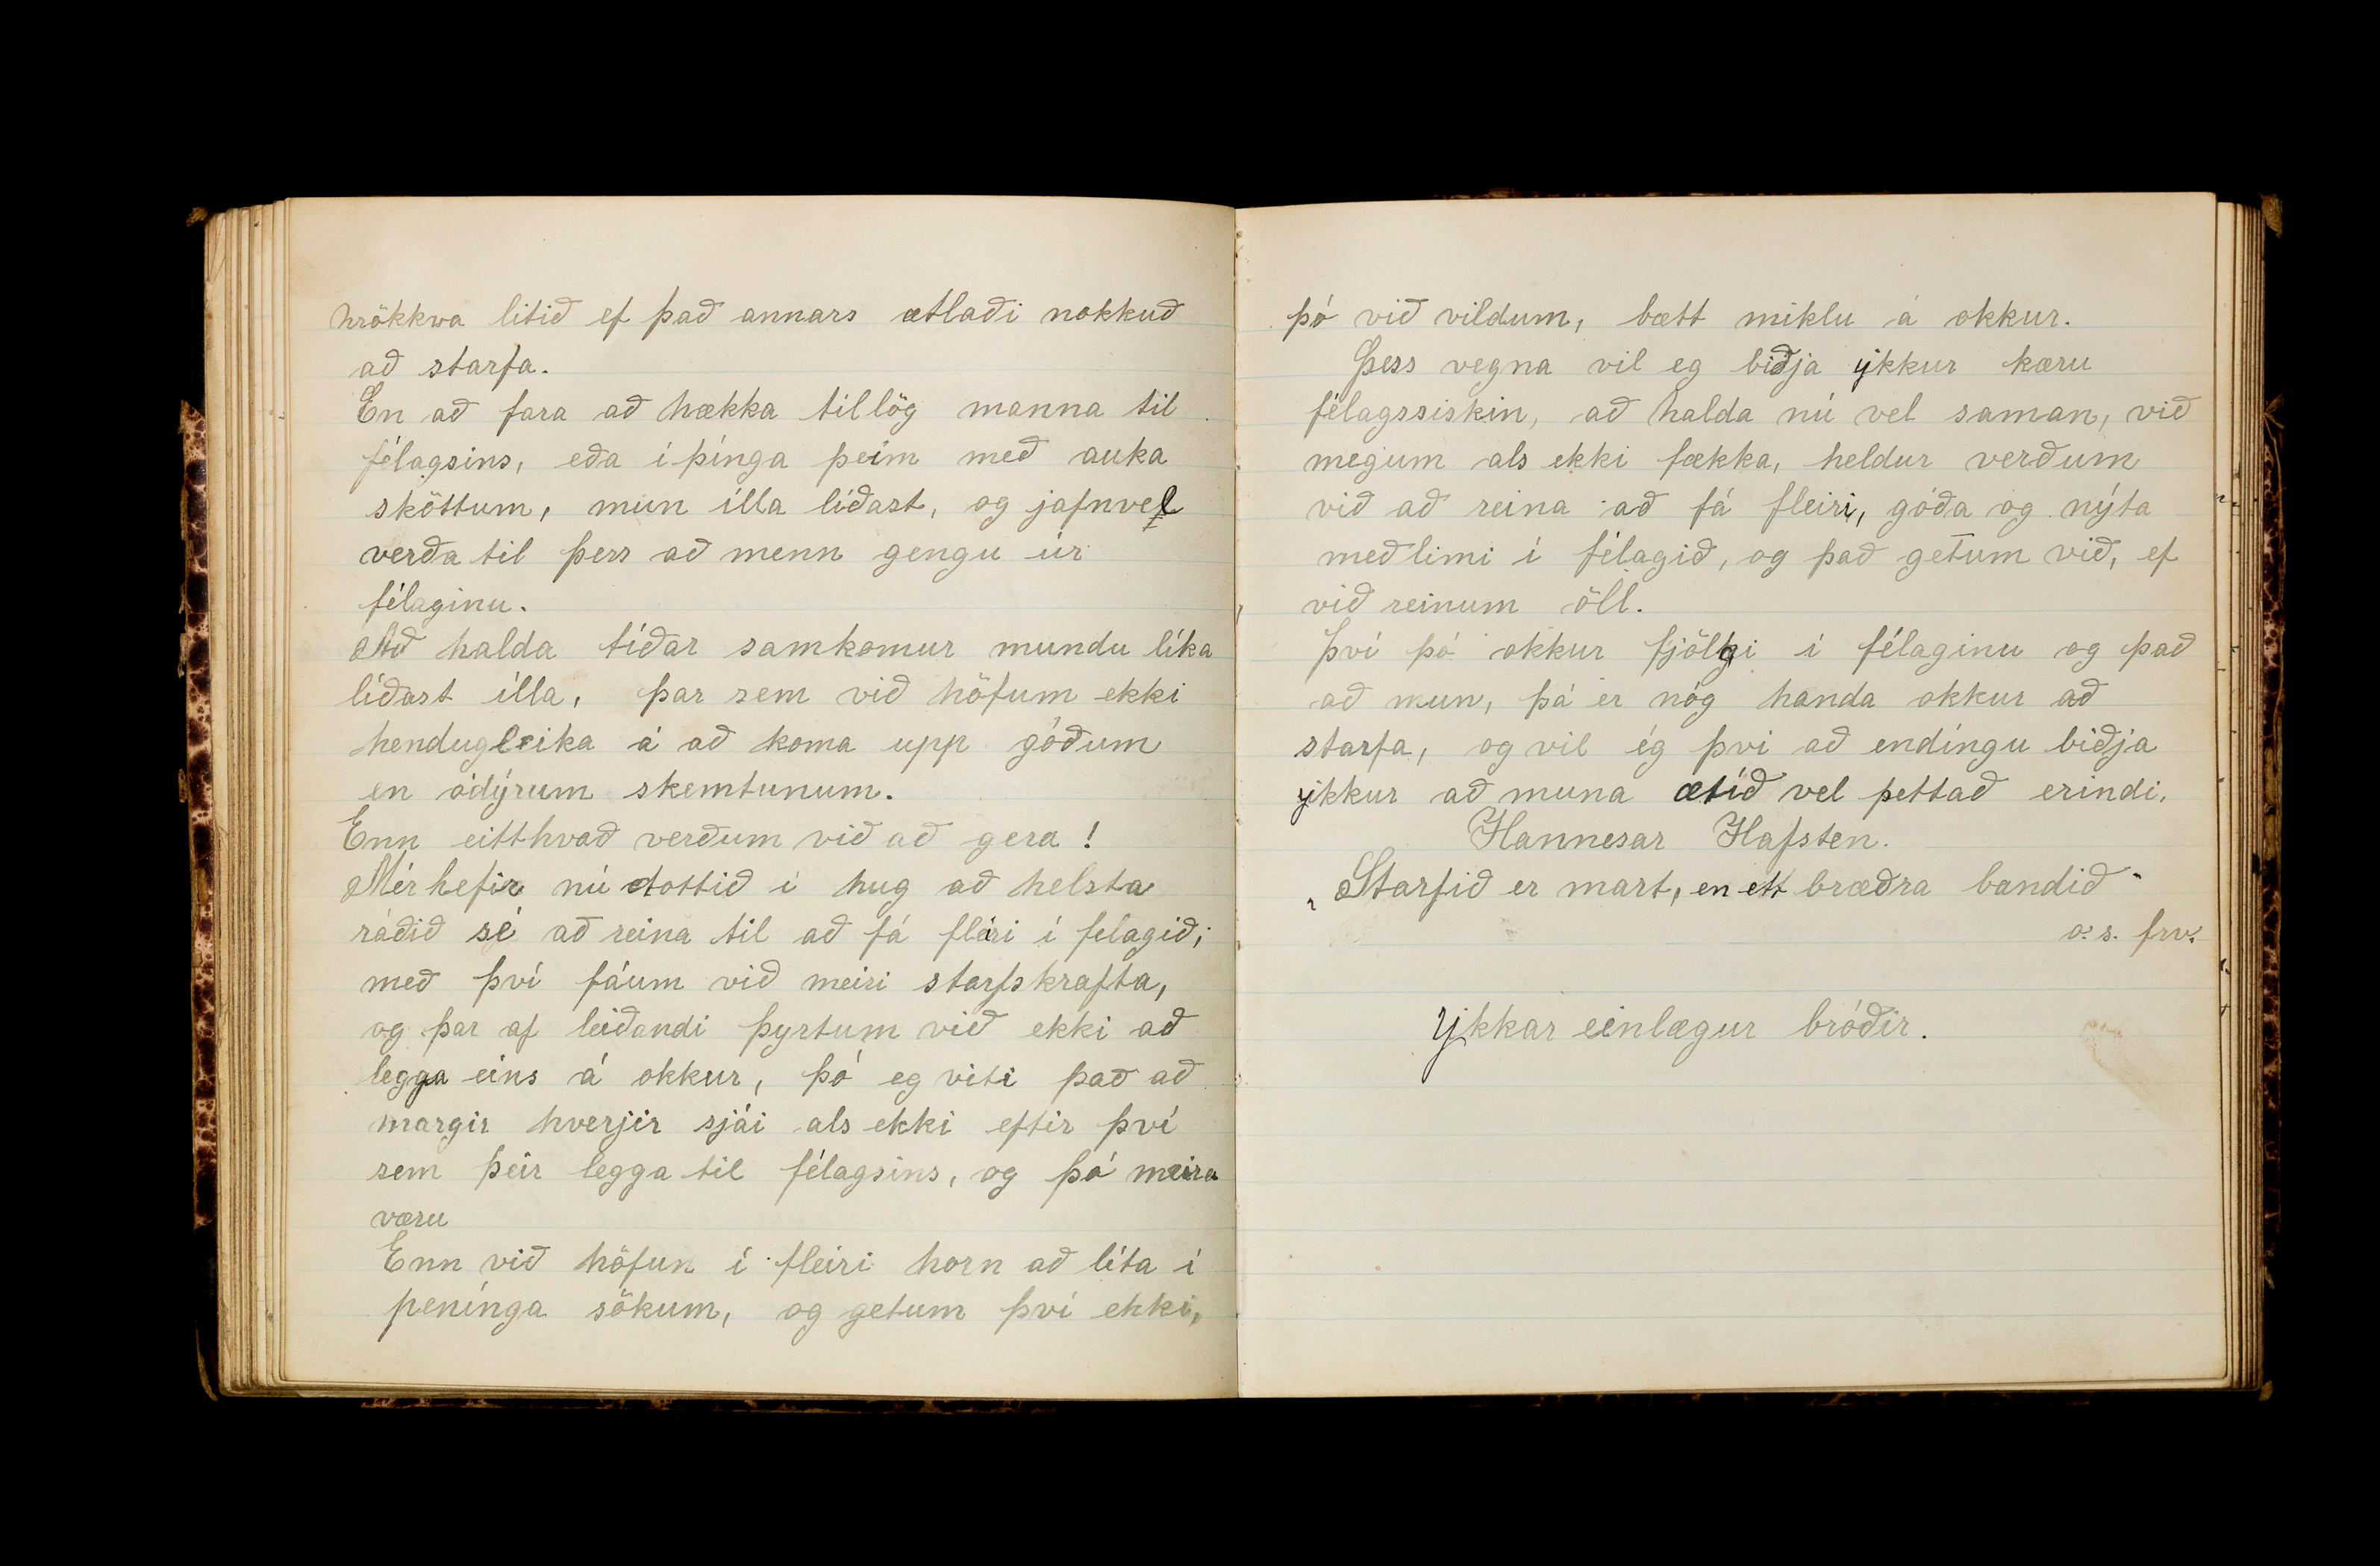 hrökkva litið ef það annars ætlaði nokkuð
að starfa.
En að fara að hækka tillög manna til
félagsins, eða í þinga þeim með auka
sköttum, mun illa liðast, og jafnvel
verða til þess að menn gengu úr
félaginu.
Að halda tíðar samkomur mundu líka
líðast illa, þar sem við höfum ekki
hendugleika á að koma upp góðum
en ódýrum skemtunum.
Enn eitthvað verðum við að gera!
Mér hefir nú dottið í hug að helsta
ráðið sé að reina til að fá fleiri í felagið;
með því fáum við meiri starfskrafta,
og þar af leiðandi þyrtum við ekki að
legga eins á okkur, þó eg viti það að
margir hverjir sjái als ekki eftir því
sem þeir legga til félagsins, og þó meira
væru
Enn við höfun í fleiri horn að líta í
penínga sökum, og getum því ekki,
þó við vildum, bætt miklu á okkur.
Þess vegna vil eg biðja ykkur kæru
félagssiskin, að halda nú vel saman, við
megum als ekki fækka, heldur verðum
við að reina að fá fleiri, góða og nýta
meðlimi í félagið, og það getum við, ef
við reinum öll.
Því þó okkur fjölgi í félaginu og það
að mun, þá er nóg handa okkur að
starfa, og vil ég því að endíngu biðja
ykkur að muna ætíð vel þettað erindi.
Hannesar Hafsten.
„Starfið er mart, en ett bræðra bandið"
o. s. frv.
Ykkar einlægur bróðir.